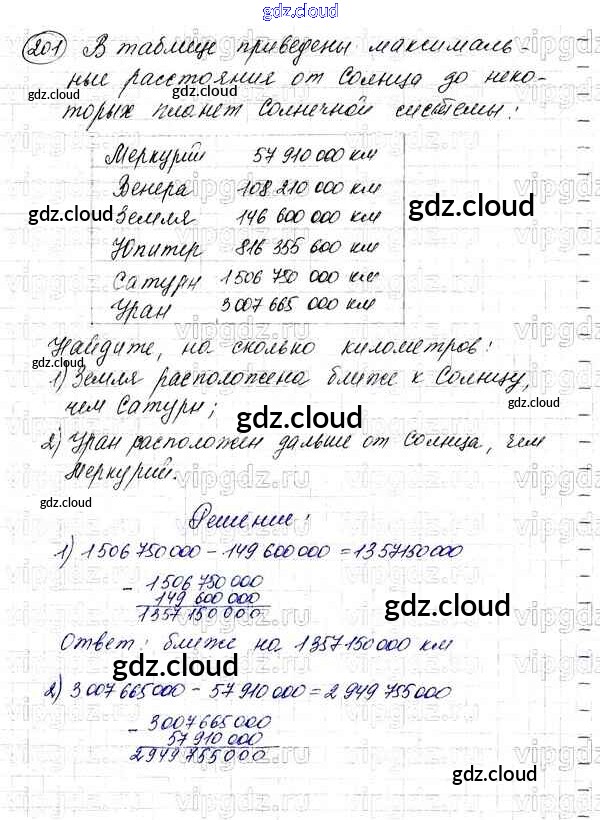 gdz.cloud
201 В таблице приведены максималь-
ные расстояния от Солнца до неко-
gdz.cloud
торых планет Солнечной системы:
Меркурий 57 910 000 км
Венера 108 210 000 км
gdz.cloud
gdz.cloud
Земля 146 600 000 км
Юпитер 816 355 600 км
Сатурн 1 506 750 000 км
Уран 3 007 665 000 км
Найдите, на сколько километров:
gdz.cloud
1) Земля расположена ближе к Солнцу,
чем Сатурн;
gdz.cloud
2) Уран расположен дальше от Солнца, чем
Меркурий.
gdz.cloud
Решение:
1) 1 506 750 000 – 149 600 000 = 1357150000
- 1506 750 000
149 600 000
1357 150 000
gdz.cloud
Ответ: ближе на 1357150000 км
gdz.cloud
2) 3 007 665 000 – 57 910 000 = 2 949 755 000
- 3007 665 000
57 910 000
2949 755 000
gdz.cloud